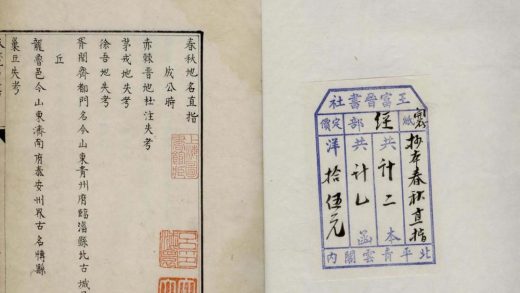 春秋地名直指
成公時
赤棘晉地杜注失考
茅戎地失考
徐吾地失考
胥閭齊都門名今山東青州府臨淄縣北古城
丘
龍魯邑今山東濟南府泰安州界古名博縣
巢丘失考
王富晉書社
抄本春秋直指
經部
共計二本
共計函
定價
洋拾伍元
北平青雲閣內